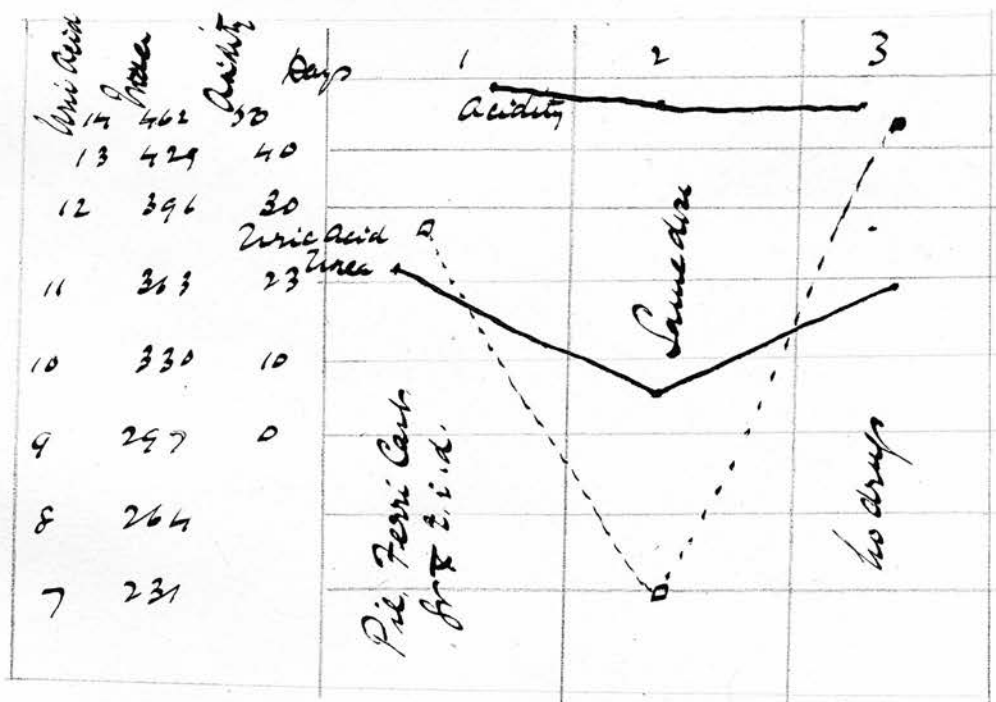 Uric Acid Urea Acidity Days 1 2 3
14 462 50
13 429 40
12 396 30
11 363 23
10 330 10
9 297 0
8 264
7 231
Acidity
Uric Acid
Urea
Pil. Ferri Carb.
gr X t.i.d.
Same dose
No drugs